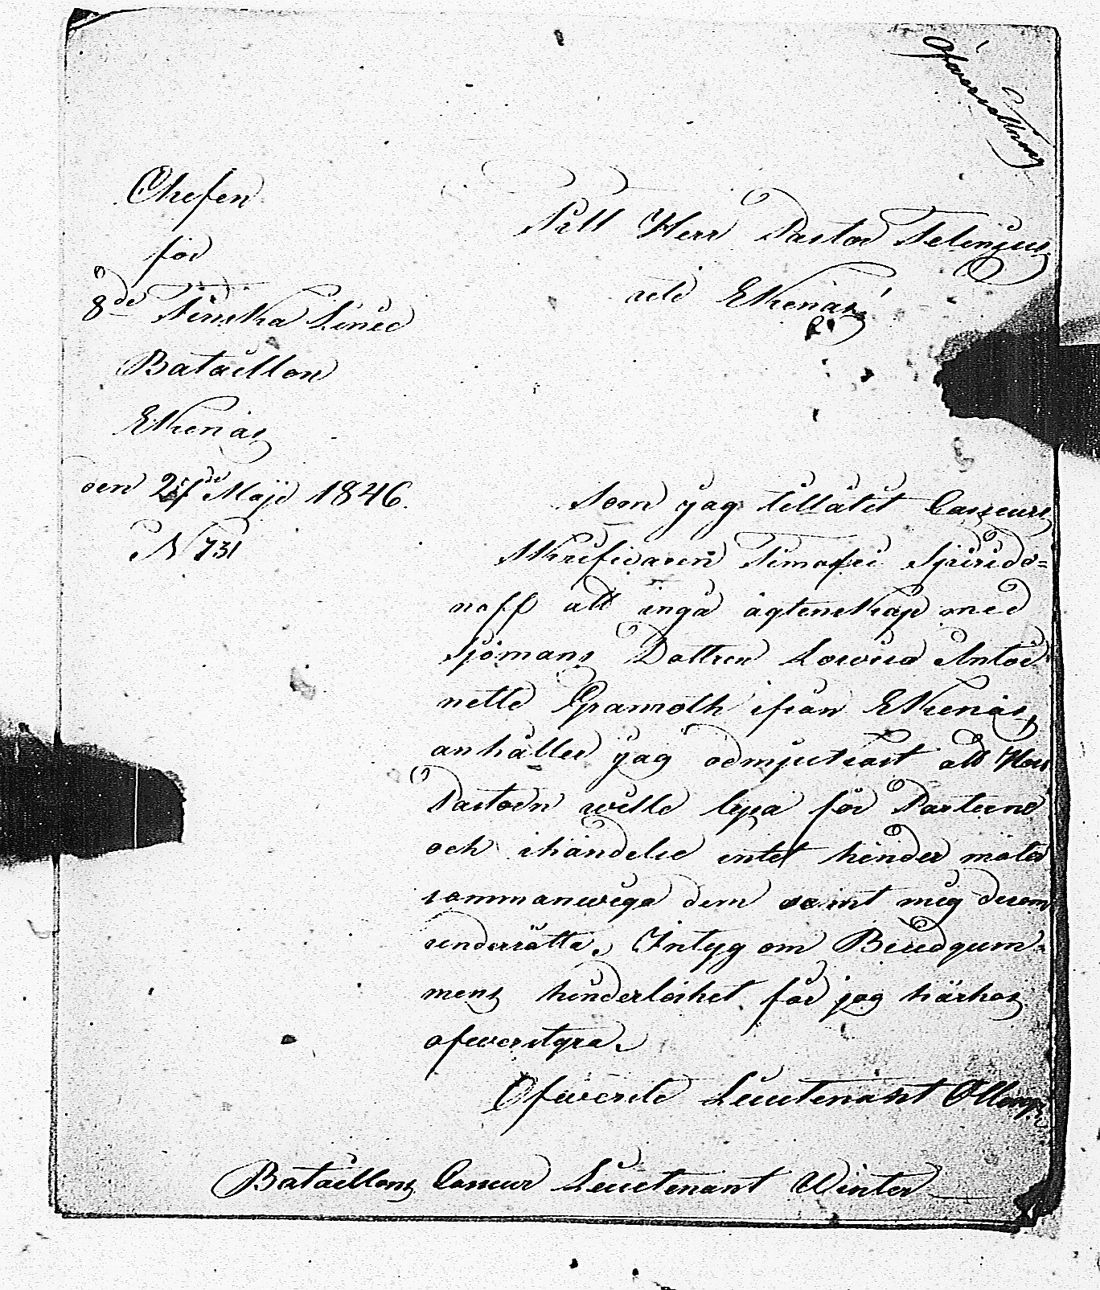 Öfversättning
Chefen
för
8de Finska Linie
Bataillon
Ekenäs
den 27de Maji 1846.
N 731
Till Herr Pastor Telenius
uti Ekenäs!
Som jag tillåtit Casseurs
Skrifvaren Timofei Spirido=
noff att ingå ägtenskap med
Sjömans Dottren Lowisa Antoi
nette Granroth ifrån Ekenäs,
anhåller jag ödmjukast att Herr
Pastorn wille lysa för Parterne
och ihändelse intet hinder möter
sammanwiga dem samt mig derom
underrätta. Intyg om Brudgum=
mens hinderlöshet får jag härhos
öfwerstyra.
Öfwerste Lieutenant
Bataillons Casseur Lieutenant Winter